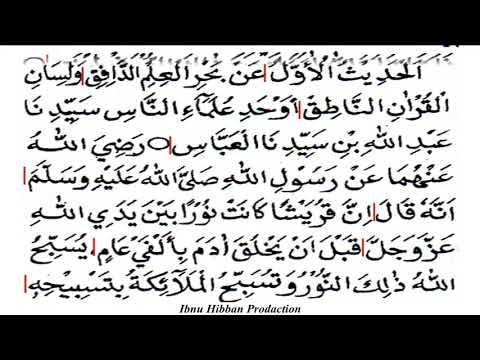 اَلْحَدِيْثُ الْاَوَّلُ | عَنْ بَحْرِ الْعِلْمِ الدَّافِقِ | وَلِسَانِ
الْقُرْاٰنِ النَّاطِقِ | اَوْحَدِ عُلَمَاءِ النَّاسِ سَيِّدِنَا
عَبْدِ اللهِ بْنِ سَيِّدِنَا الْعَبَّاسِ | ○ رَضِيَ اللهُ
عَنْهُمَا عَنْ رَسُوْلِ اللهِ صَلَّى اللهُ عَلَيْهِ وَسَلَّمَ |
اَنَّهُ قَالَ | اِنَّ قُرَيْشًا كَانَتْ نُوْرًا بَيْنَ يَدَيِ اللهِ
عَزَّ وَجَلَّ | قَبْلَ اَنْ يَخْلُقَ اٰدَمَ بِاَلْفَيْ عَامٍ | يُسَبِّحُ
اللهَ ذٰلِكَ النُّوْرُ وَتُسَبِّحُ الْمَلَائِكَةُ بِتَسْبِيْحِهِ |
Ibnu Hibban Prodaction